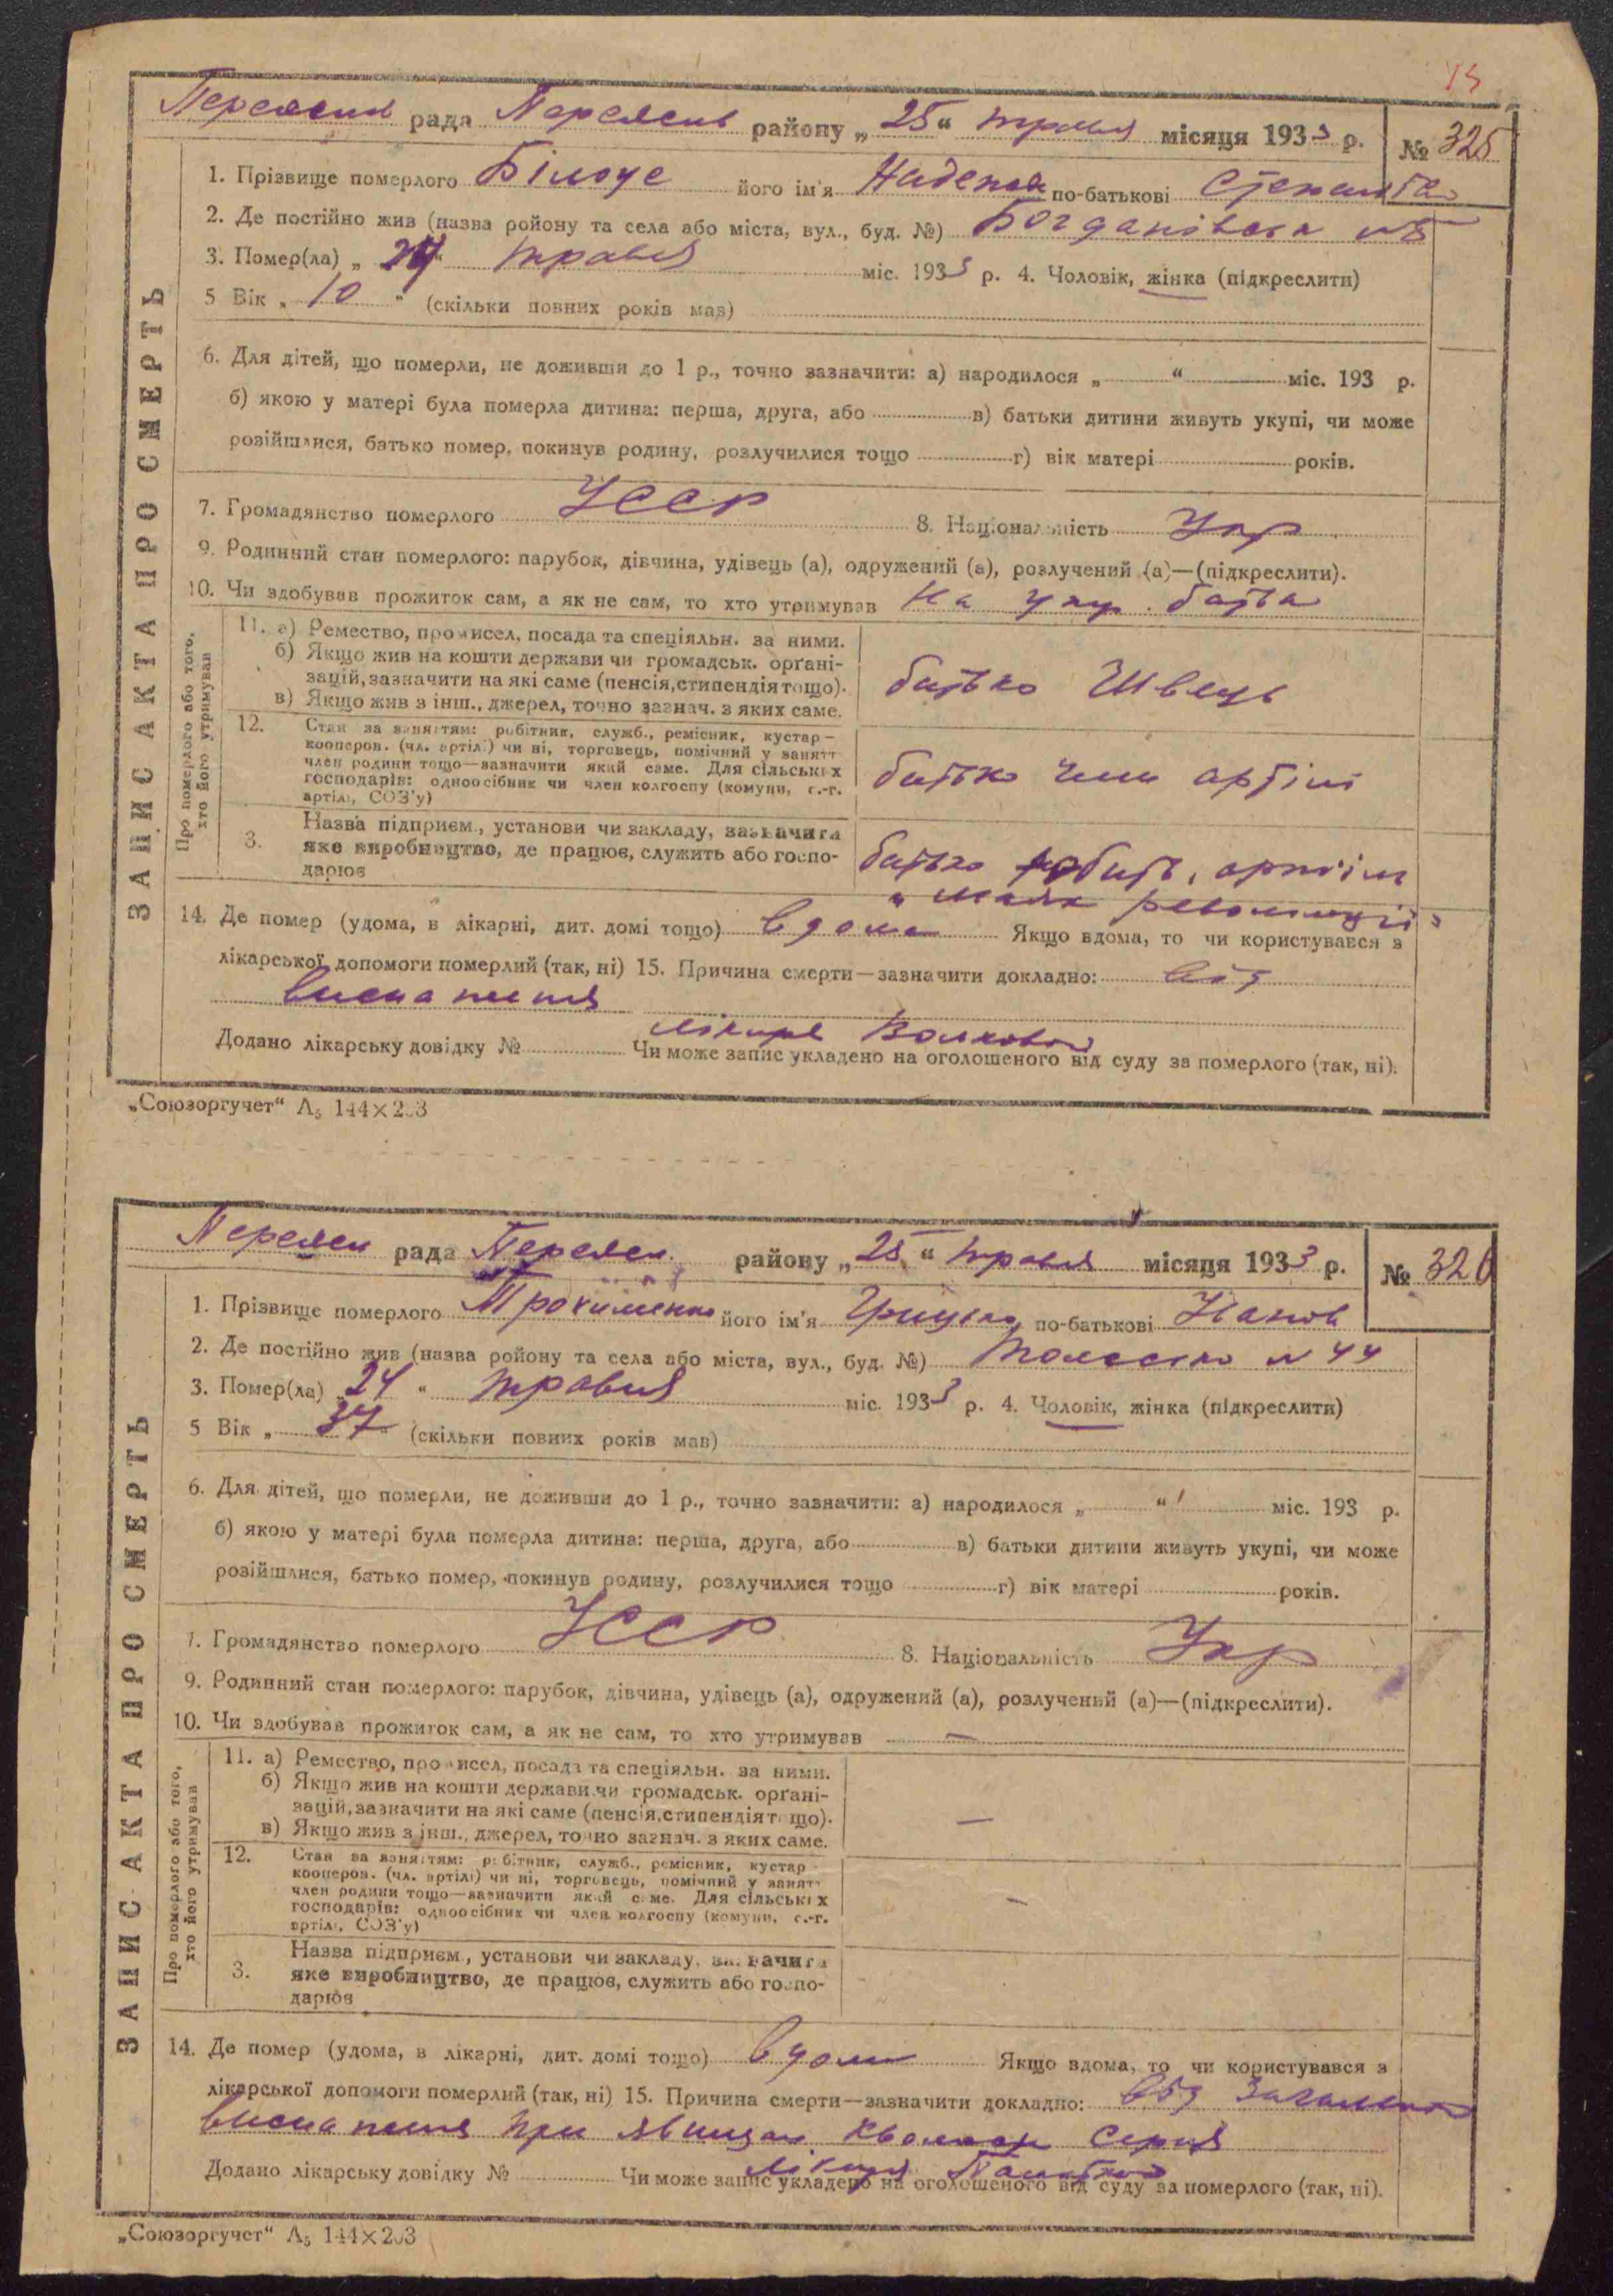 13
Переяслів рада Переяслів району „ 25 “ травня місяця 1933 р. № 325
ЗАПИС АКТА ПРО СМЕРТЬ
1. Прізвище померлого Білоус його ім'я Надежда по-батькові
2. Де постійно жив (назва ройону та села або міста, вул., буд. №) Богданівська
3. Помер(ла) „ 24 “ травня міс. 1933 р. 4. Чоловік, жінка (підкреслити)
5 Вік „ 10 “ (скільки повних років мав)
6. Для дітей, що померли, не доживши до 1 р., точно зазначити: а) народилося „ “ міс. 193 р.
б) якою у матері була померла дитина: перша, друга, або в) батьки дитини живуть укупі, чи може
розійшлися, батько помер, покинув родину, розлучилися тощо г) вік матері років.
7. Громадянство померлого УССР 8. Національність Укр
9. Родинний стан померлого: парубок, дівчина, удівець (а), одружений (а), розлучений (а)—(підкреслити).
10. Чи здобував прожиток сам, а як не сам, то хто утримував На утр. батька
Про померлого або того,
хто його утримував
11. а) Ремество, промисел, посада та спеціяльн. за ними.
б) Якщо жив на кошти держави чи громадськ. орґані-
зацій, зазначити на які саме (пенсія, стипендія тощо).
в) Якщо жив з інш., джерел, точно зазнач. з яких саме.
батько Швець
12. Стан за заняттям: робітник, служб., ремісник, кустар—
кооперов. (чл. артілі) чи ні, торговець, помічний у занятт
член родини тощо—зазначити який саме. Для сільських
господарів: одноосібник чи член колгоспу (комуни, с.-г.
артілі, СОЗ'у)
батько член артілі
3. Назва підприєм., установи чи закладу, зазначити
яке виробництво, де працює, служить або госпо-
дарює
батько робить, артіль
„ маяк революції "
14. Де помер (удома, в лікарні, дит. домі тощо) вдома Якщо вдома, то чи користувався з
лікарської допомоги померлий (так, ні) 15. Причина смерти—зазначити докладно: від
виснаження
лікаря Волкової
Додано лікарську довідку № Чи може запис укладено на оголошеного від суду за померлого (так, ні).
„Союзоргучет“ А5 144×203
Переясл рада Переясл. району „ 25 “ травня місяця 1933 р. № 326
ЗАПИС АКТА ПРО СМЕРТЬ
1. Прізвище померлого Трохименко його ім'я Грицько по-батькові Іванов
2. Де постійно жив (назва ройону та села або міста, вул., буд. №) N 44
3. Помер(ла) „ 24 “ травня міс. 1933 р. 4. Чоловік, жінка (підкреслити)
5 Вік „ 37 “ (скільки повних років мав)
6. Для дітей, що померли, не доживши до 1 р., точно зазначити: а) народилося „ “ міс. 193 р.
б) якою у матері була померла дитина: перша, друга, або в) батьки дитини живуть укупі, чи може
розійшлися, батько помер, покинув родину, розлучилися тощо г) вік матері років.
7. Громадянство померлого УССР 8. Національність Укр
9. Родинний стан померлого: парубок, дівчина, удівець (а), одружений (а), розлучений (а)—(підкреслити).
10. Чи здобував прожиток сам, а як не сам, то хто утримував —
Про померлого або того,
хто його утримував
11. а) Ремество, промисел, посада та спеціяльн. за ними.
б) Якщо жив на кошти держави чи громадськ. орґані-
зацій, зазначити на які саме (пенсія, стипендія тощо).
в) Якщо жив з інш., джерел, точно зазнач. з яких саме.
—
12. Стан за заняттям: робітник, служб., ремісник, кустар—
кооперов. (чл. артілі) чи ні, торговець, помічний у занятт
член родини тощо—зазначити який саме. Для сільських
господарів: одноосібник чи член колгоспу (комуни, с.-г.
артілі, СОЗ'у)
—
3. Назва підприєм., установи чи закладу, зазначити
яке виробництво, де працює, служить або госпо-
дарює
14. Де помер (удома, в лікарні, дит. домі тощо) вдома Якщо вдома, то чи користувався з
лікарської допомоги померлий (так, ні) 15. Причина смерти—зазначити докладно: від загального
виснаження при явищах кволости серця
лікаря
Додано лікарську довідку № Чи може запис укладено на оголошеного від суду за померлого (так, ні).
„Союзоргучет“ А5 144×203